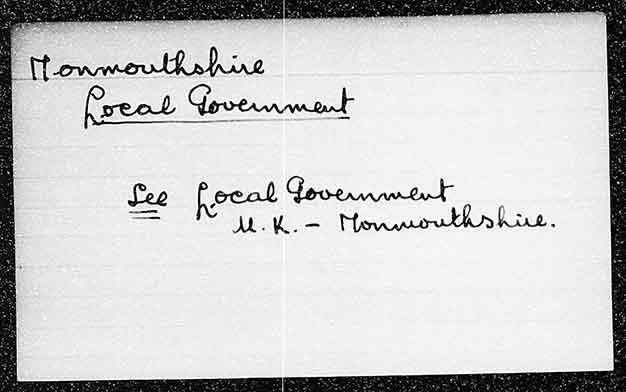 Monmouthshire
Local Government
See Local Government
U.K. – Monmouthshire.